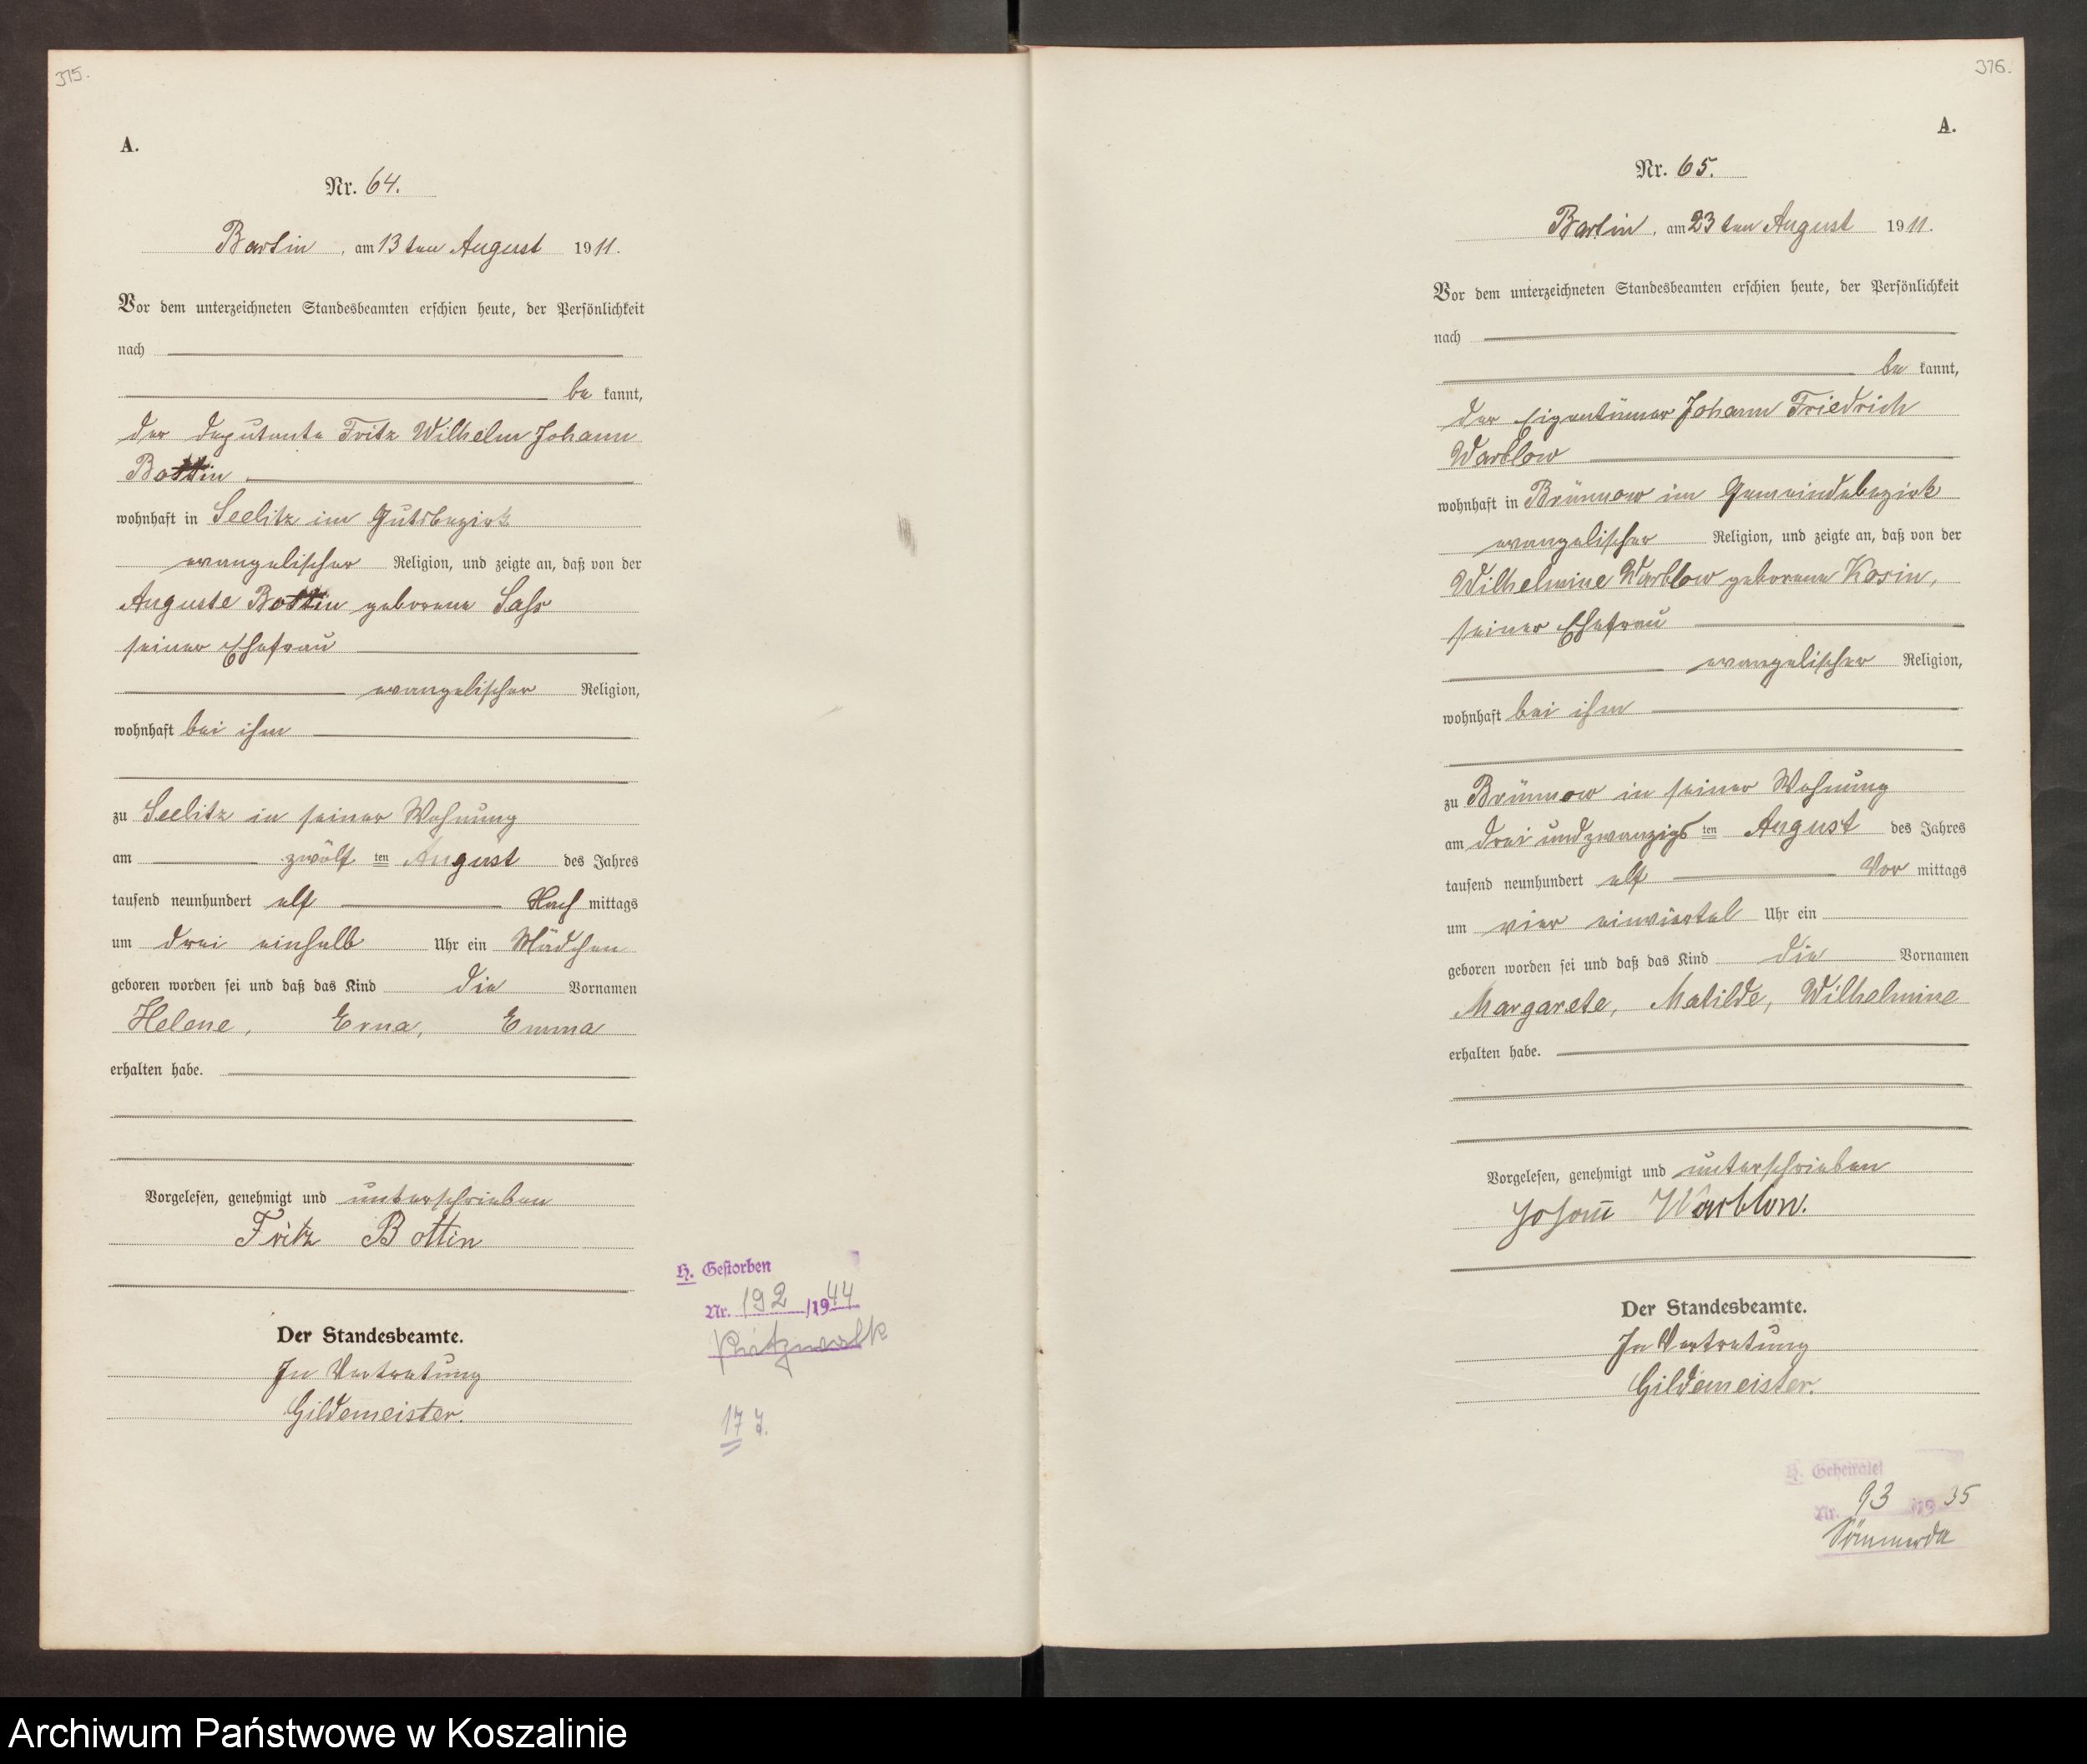 375.
A.
Nr. 64.
Bartin, am 13ten August 1911.
Vor dem unterzeichneten Standesbeamten erschien heute, der Persönlichkeit
nach
be kannt,
der Deputante Fritz Wilhelm Johann
Bottin
wohnhaft in Seelitz im Gutsbezirk
evangelischer Religion, und zeigte an, daß von der
Auguste Bottin geborene Sass
seiner Ehefrau
evangelischer Religion,
wohnhaft bei ihm
zu Seelitz in seiner Wohnung
am zwölf ten August des Jahres
tausend neunhundert elf Nach mittags
um drei einhalb Uhr ein Mädchen
geboren worden sei und daß das Kind die Vornamen
Helene, Erna, Emma
erhalten habe.
Vorgelesen, genehmigt und unterschrieben
Fritz Bottin
Der Standesbeamte.
In Vertretung
Gildemeister.
H. Gestorben
Nr. 192 /1944
Pritzwalk
17 J.
376.
A.
Nr. 65.
Bartin, am 23ten August 1911.
Vor dem unterzeichneten Standesbeamten erschien heute, der Persönlichkeit
nach
be kannt,
der Eigentümer Johann Friedrich
Warblow
wohnhaft in Brünnow im Gemeindebezirk
evangelischer Religion, und zeigte an, daß von der
Wilhelmine Warblow geborene Kosin,
seiner Ehefrau
evangelischer Religion,
wohnhaft bei ihm
zu Brünnow in seiner Wohnung
am drei und zwanzigs ten August des Jahres
tausend neunhundert elf Vor mittags
um vier einviertel Uhr ein
geboren worden sei und daß das Kind die Vornamen
Margarete, Matilde, Wilhelmine
erhalten habe.
Vorgelesen, genehmigt und unterschrieben
Johann Warblow.
Der Standesbeamte.
In Vertretung
Gildemeister.
H. Geheiratet
Nr. 93 /1935
Sömmerda
Archiwum Państwowe w Koszalinie